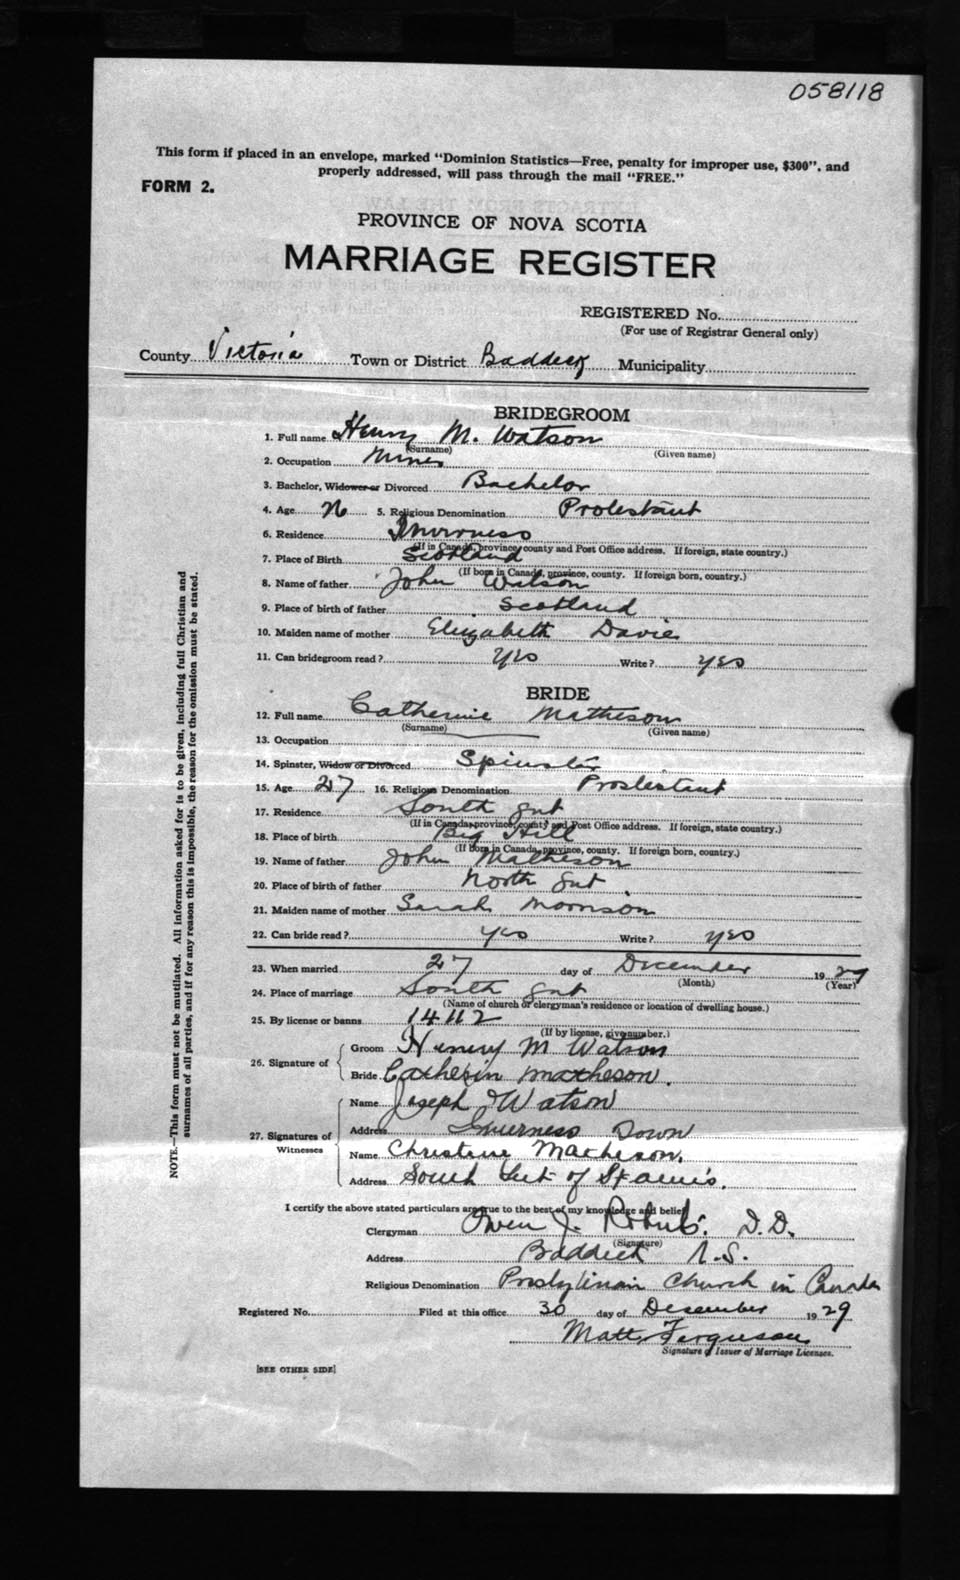 058118
This form if placed in an envelope, marked "Dominion Statistics—Free, penalty for improper use, $300", and
properly addressed, will pass through the mail "FREE."
FORM 2.
PROVINCE OF NOVA SCOTIA
MARRIAGE REGISTER
REGISTERED No.
(For use of Registrar General only)
County Victoria Town or District Baddeck Municipality
BRIDEGROOM
1. Full name Henry M. Watson
(Surname) (Given name)
2. Occupation Miner
3. Bachelor, Widower or Divorced Bachelor
4. Age 5. Religious Denomination Protestant
6. Residence Inverness
(If in Canada, province, county and Post Office address. If foreign, state country.)
7. Place of Birth Scotland
(If born in Canada, province, county. If foreign born, country.)
8. Name of father John Watson
9. Place of birth of father Scotland
10. Maiden name of mother Elizabeth Davie
11. Can bridegroom read? yes Write? yes
BRIDE
12. Full name Catherine Matheson
(Surname) (Given name)
13. Occupation
14. Spinster, Widow or Divorced Spinster
15. Age 27 16. Religious Denomination Prostestant
17. Residence South Gut
(If in Canada, province, county and Post Office address. If foreign, state country.)
18. Place of birth Big Hill
(If born in Canada, province, county. If foreign born, country.)
19. Name of father John Matheson
20. Place of birth of father North Gut
21. Maiden name of mother Sarah Morrison
22. Can bride read? yes Write? yes
23. When married 27 day of December 1929
(Month) (Year)
24. Place of marriage South Gut
(Name of church or clergyman's residence or location of dwelling house.)
25. By license or banns 14112
(If by license, give number.)
26. Signature of Groom Henry M Watson
Bride Catherin Matheson.
27. Signatures of Witnesses
Name Joseph Watson
Address Inverness Down
Name Christene Matheson.
Address South Gut of St anns.
I certify the above stated particulars are true to the best of my knowledge and belief.
Clergyman Owen J. Roberts. D.D.
(Signature)
Address Baddeck N.S.
Religious Denomination Presbyterian Church in Canada
Registered No. Filed at this office 30 day of December 1929
Matt Ferguson
Signature of Issuer of Marriage Licenses.
[SEE OTHER SIDE]
NOTE.—This form must not be mutilated. All information asked for is to be given, including full Christian and
surnames of all parties, and if for any reason this is impossible, the reason for the omission must be stated.